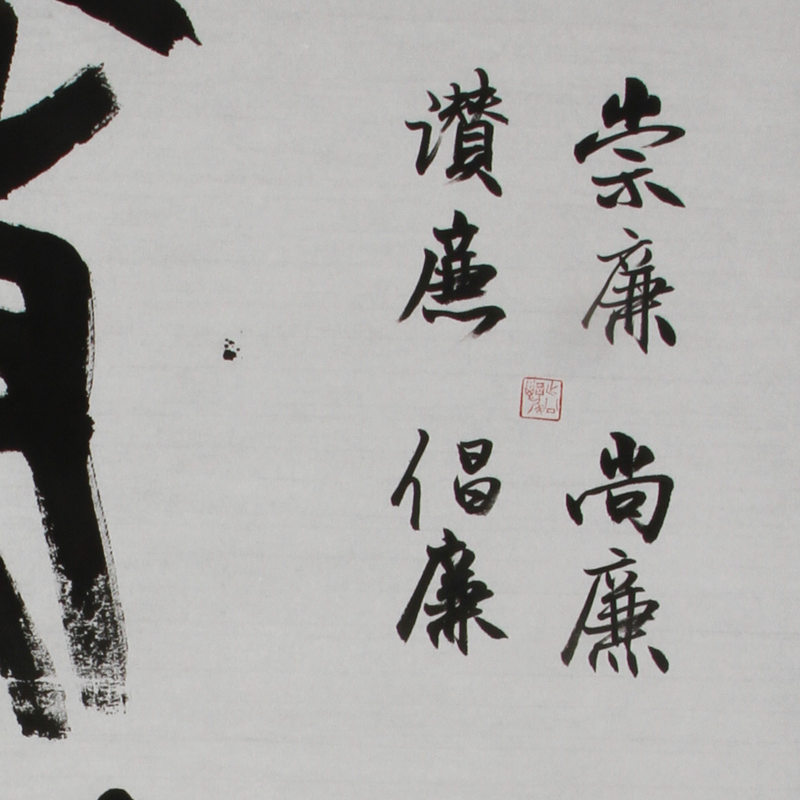 崇廉 尚廉
讃廉 倡廉